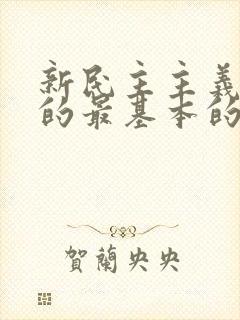 新民主主義
的最基本的
賀蘭央央